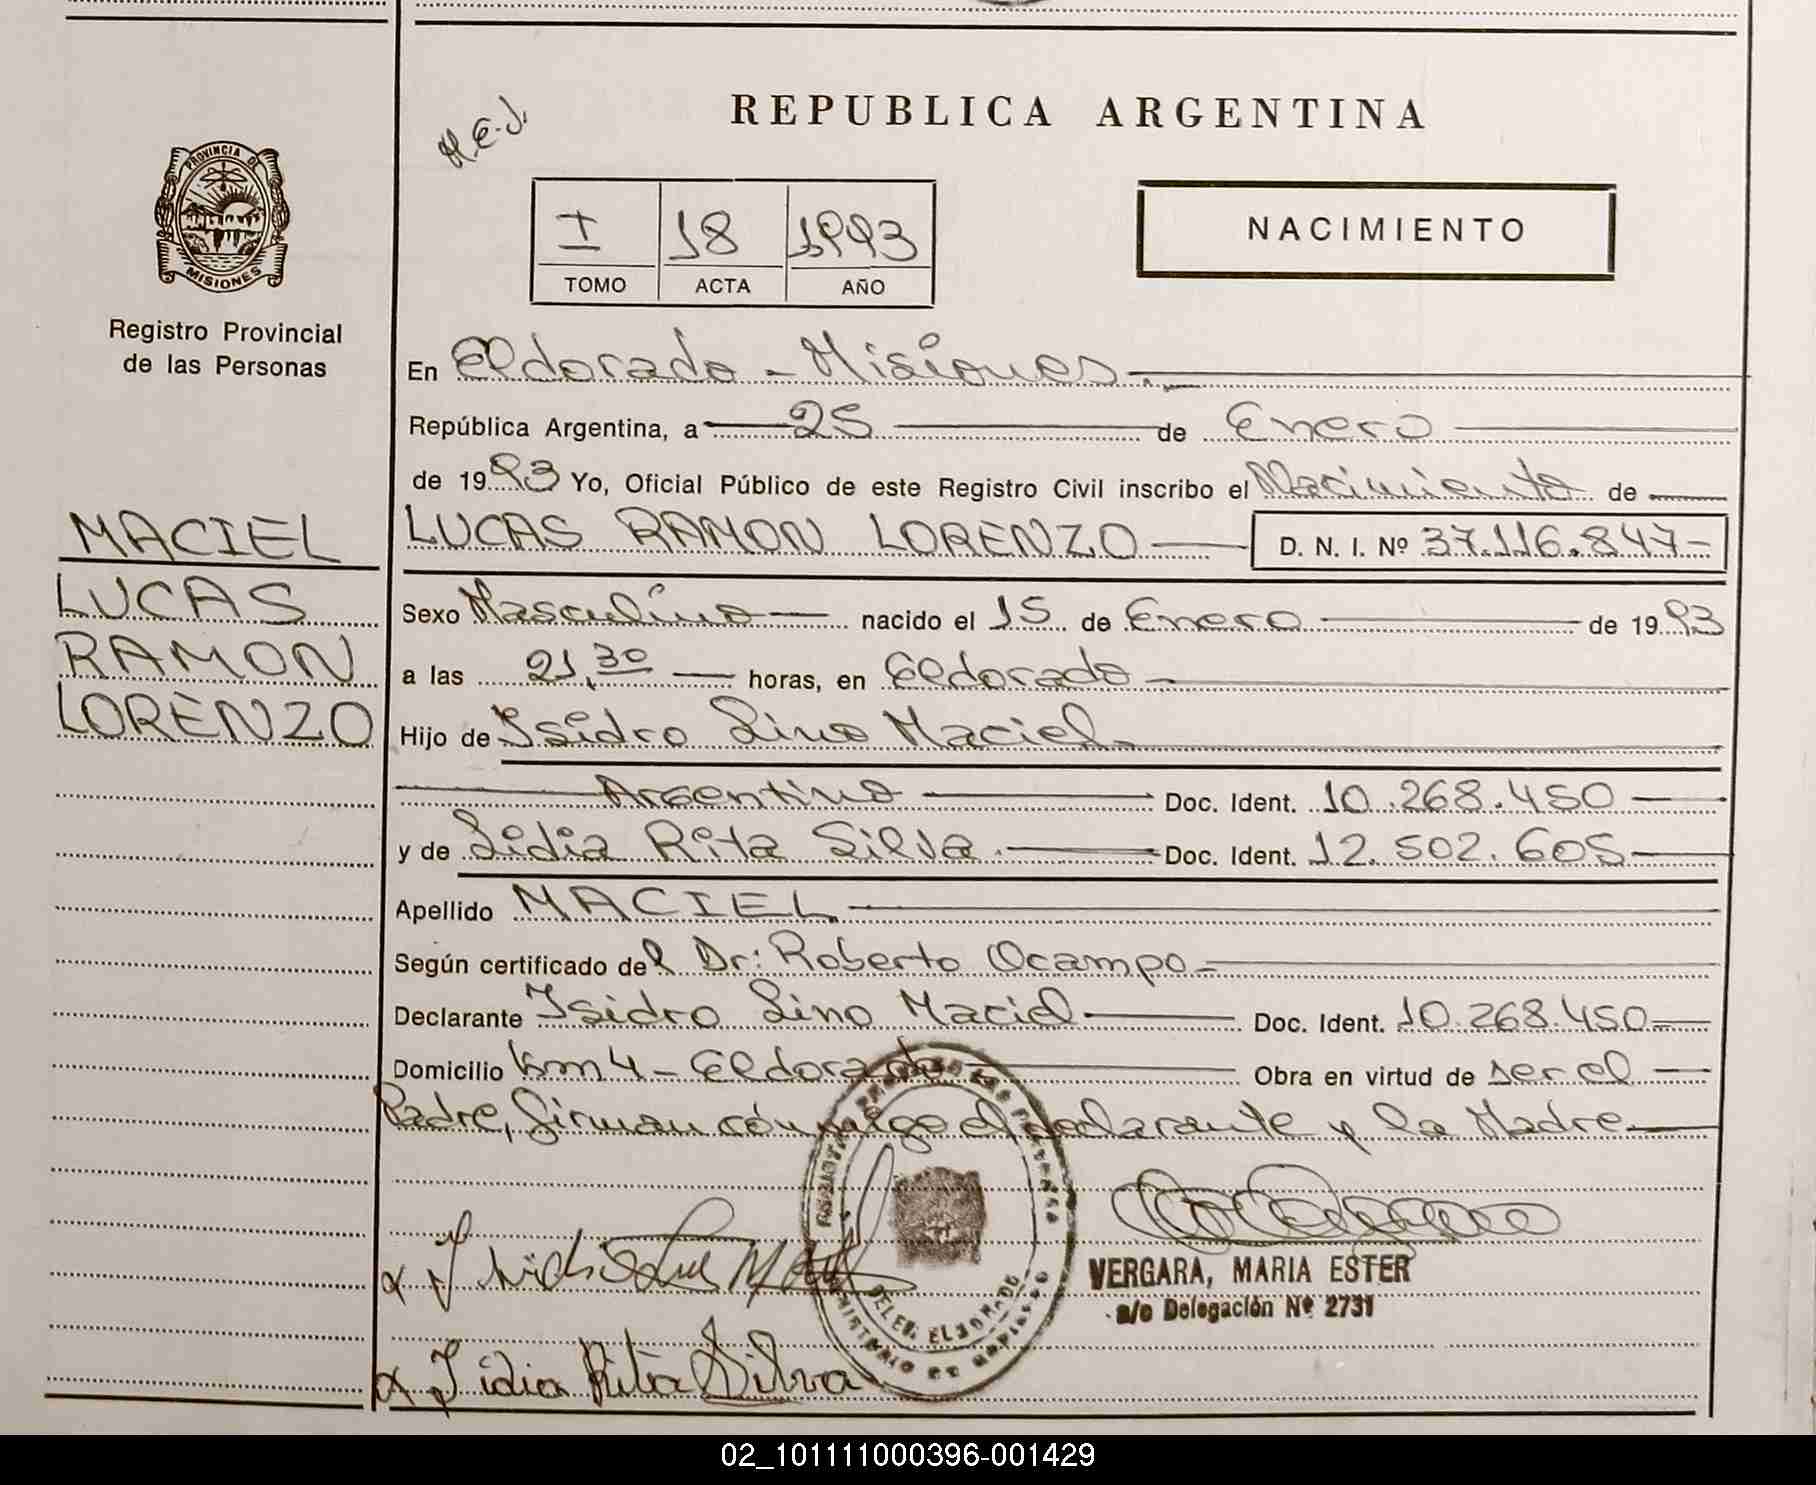 REPUBLICA ARGENTINA
M.E.J.
PROVINCIA DE
MISIONES
Registro Provincial
de las Personas
I 18 1993
TOMO ACTA AÑO
NACIMIENTO
En Eldorado - Misiones.
República Argentina, a 25 de Enero
de 1993 Yo, Oficial Público de este Registro Civil inscribo el Nacimiento de
MACIEL
LUCAS
RAMON
LORENZO
LUCAS RAMON LORENZO D. N. I. Nº 37.116.847-
Sexo Masculino nacido el 15 de Enero de 1993
a las 21,30 horas, en Eldorado
Hijo de Isidro Lino Maciel
Argentino Doc. Ident. 10.268.450
y de Lidia Rita Silva. Doc. Ident. 12.502.605
Apellido MACIEL
Según certificado del Dr: Roberto Ocampo
Declarante Isidro Lino Maciel Doc. Ident. 10.268.450
Domicilio km 4 - Eldorado Obra en virtud de ser el
Padre, firman conmigo el declarante y la Madre
VERGARA, MARIA ESTER
a/c Delegación Nº 2731
DELEG. ELDORADO
Lidia Rita Silva
02_101111000396-001429